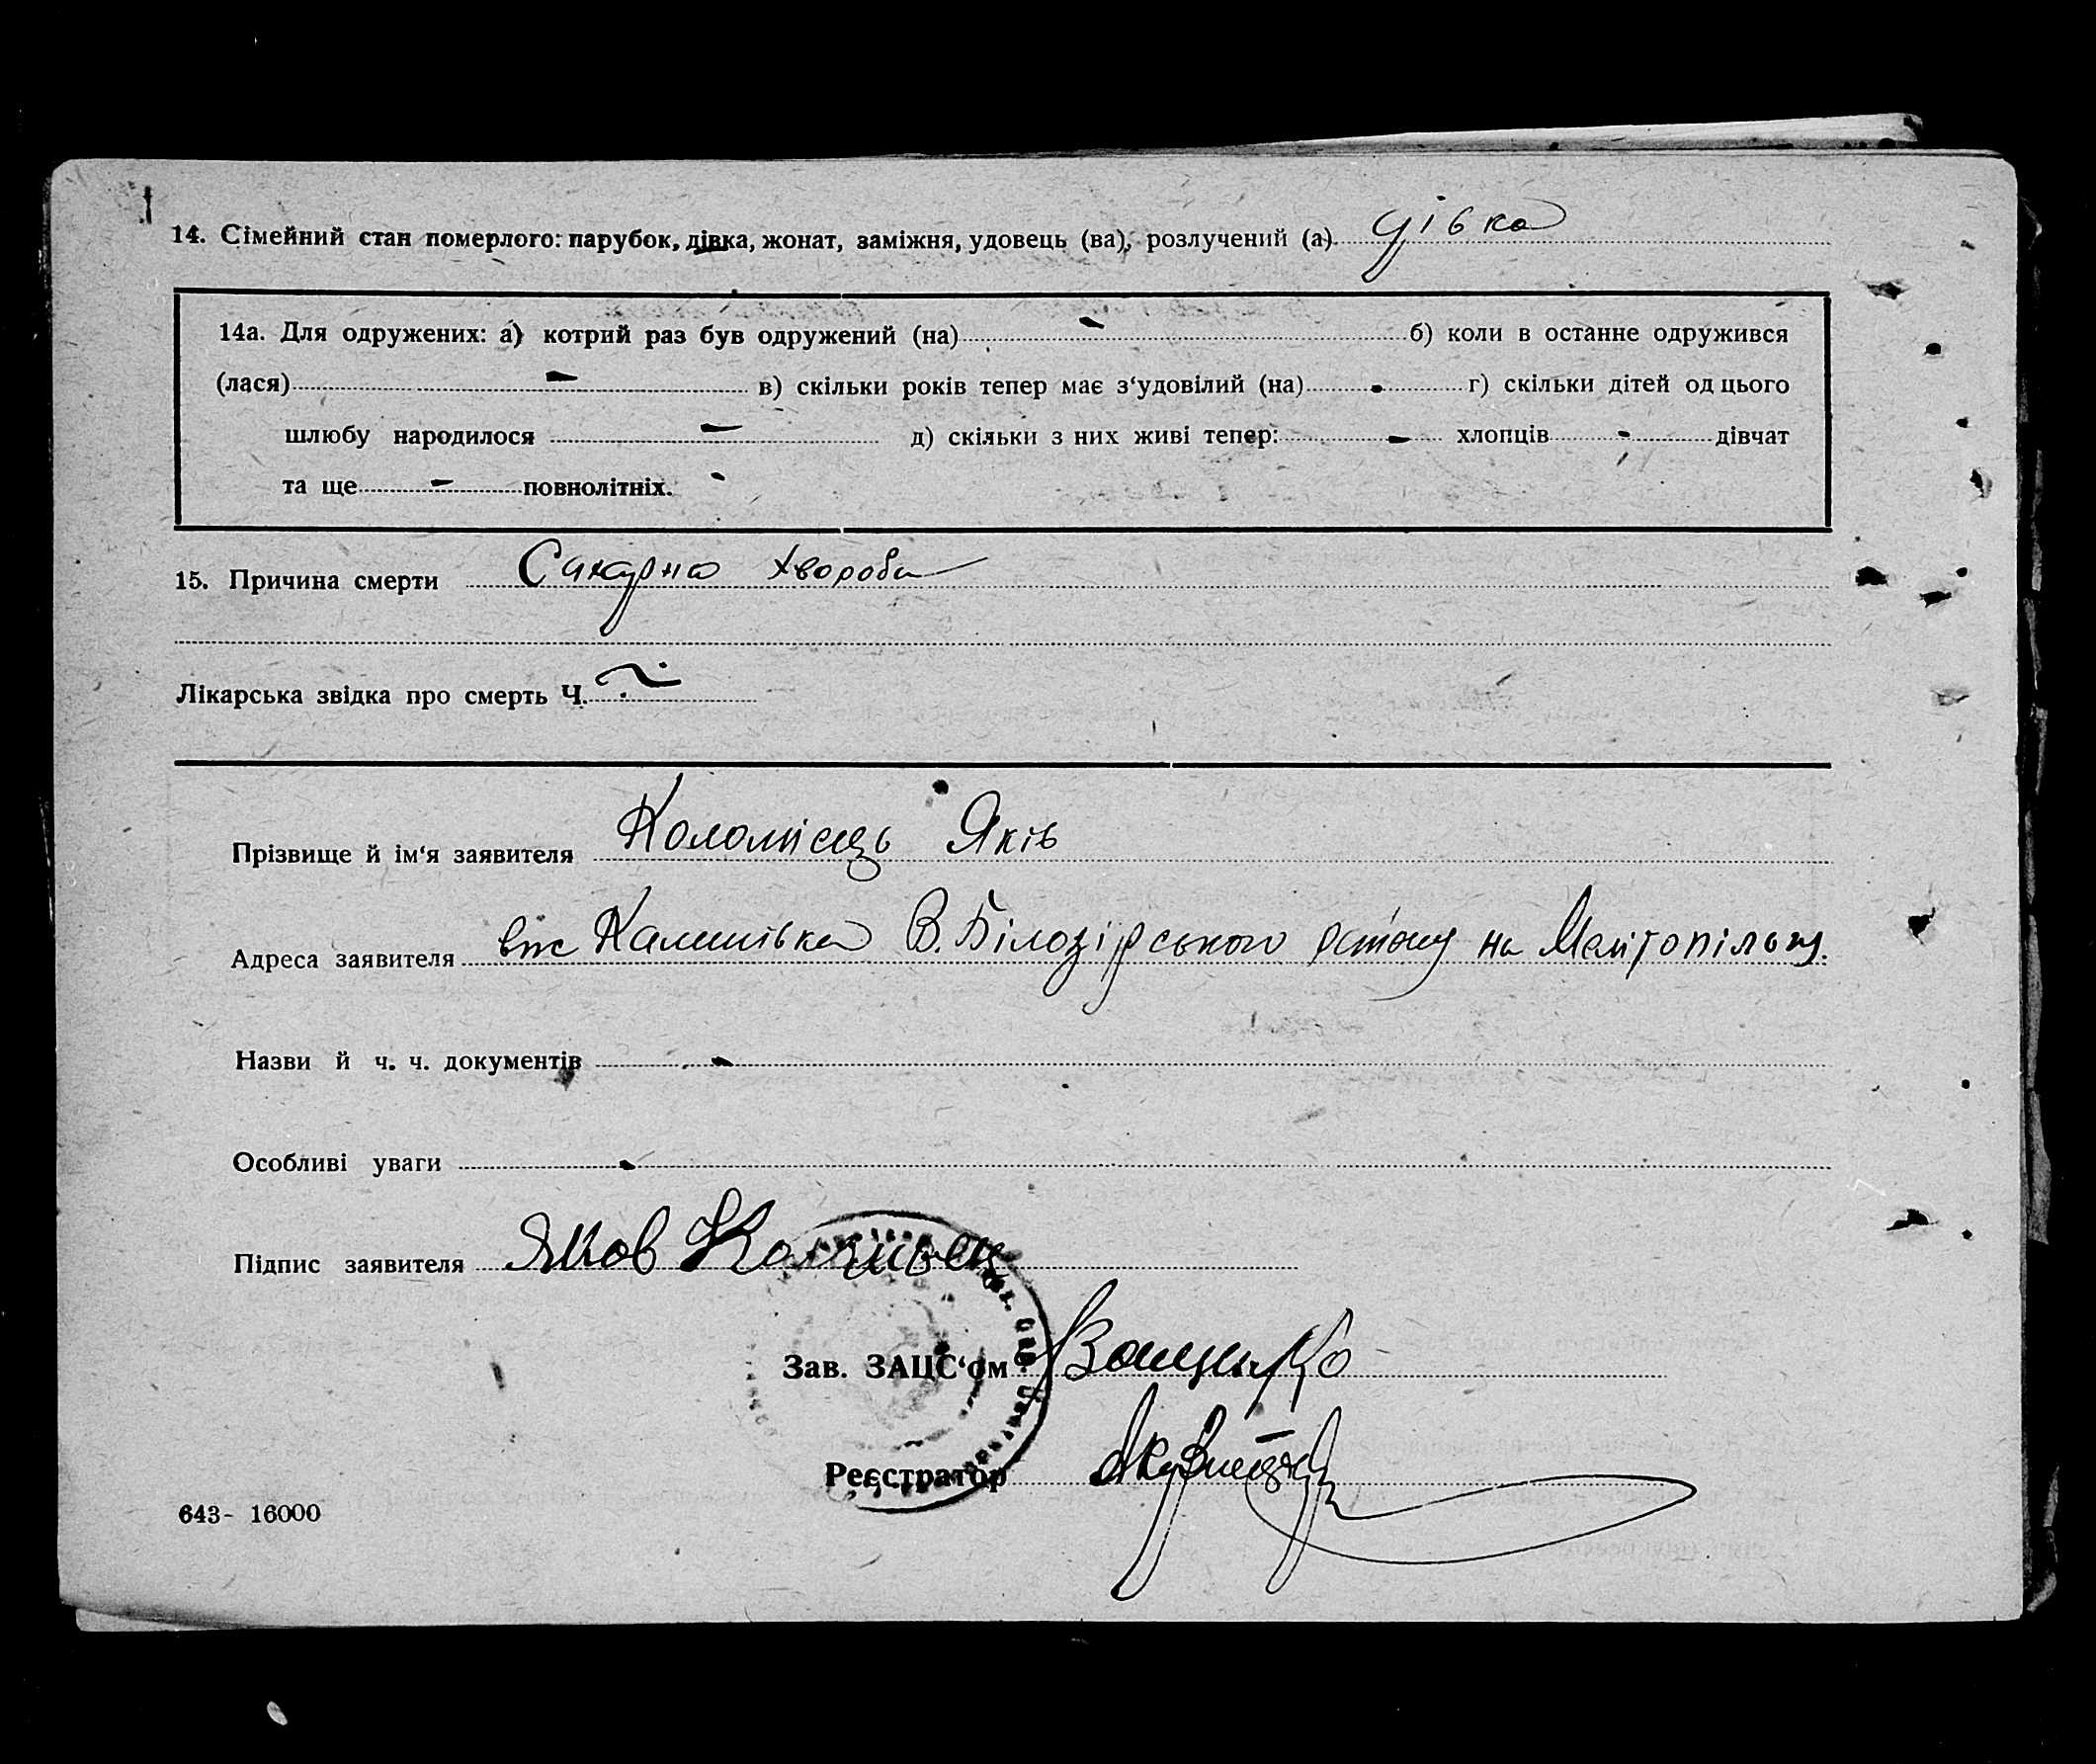 14. Сімейний стан померлого: парубок, дівка, жонат, заміжня, удовець (ва), розлучений (а) дівка
14а. Для одружених: а) котрий раз був одружений (на) - б) коли в останне одружився
(лася) - в) скільки років тепер має з‘удовілий (на) - г) скільки дітей од цього
шлюбу народилося - д) скільки з них живі тепер: - хлопців - дівчат
та ще - повнолітніх.
15. Причина смерти Сахарна хвороба
Лікарська звідка про смерть Ч.
Прізвище й ім‘я заявителя Коломієць Яків
Адреса заявителя В. Білозірського району на Мелітопільщ.
Назви й ч. ч. документів -
Особливі уваги -
Підпис заявителя Яков
Зав. ЗАЦС‘ом
Реєстратор
643- 16000